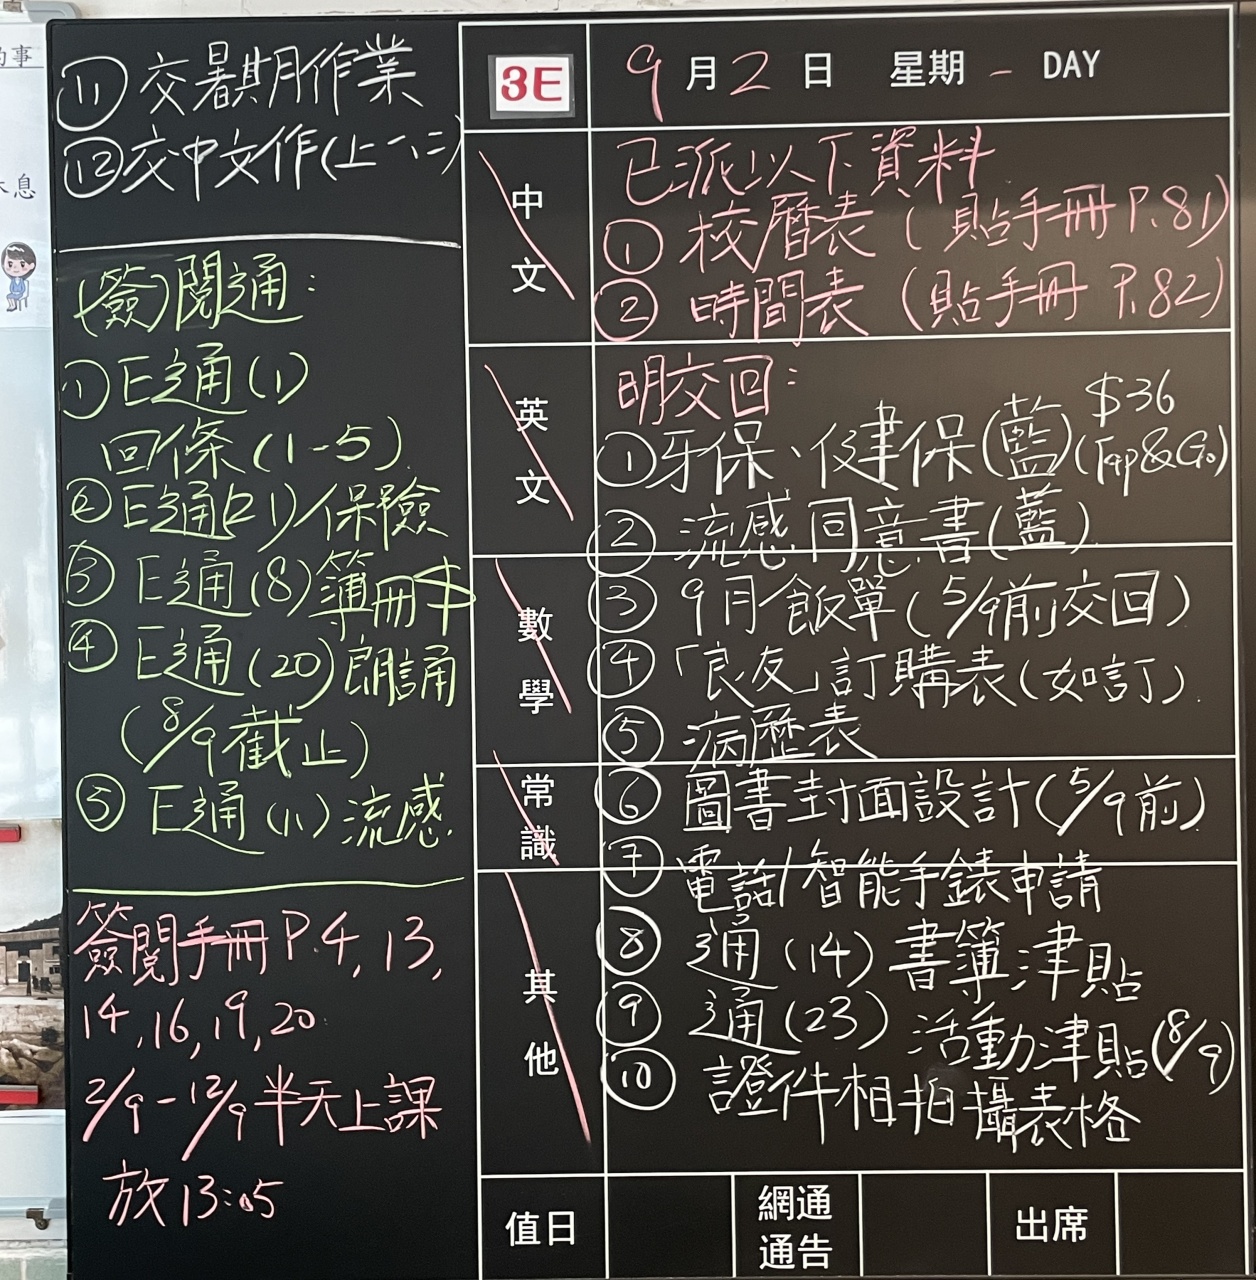 的事
息
⑪交暑期作業
⑫交中文作(上一、二)
(簽)閱通:
①E通(1)
回條(1-5)
②E通(21)/保險
③E通(8)簿冊$
④E通(20)朗誦
(8/9截止)
⑤E通(11)流感
簽閱手冊P.4,13,
14,16,19,20
2/9-12/9半天上課
放13:05
3E
9月2日 星期一 DAY
中文
已派以下資料
①校曆表(貼手冊P.81)
②時間表(貼手冊P.82)
英文
明交回:
①牙保、健保(藍)$36(Tap&Go)
②流感同意書(藍)
數學
③9月飯單(5/9前交回)
④「良友」訂購表(如訂)
⑤病歷表
常識
⑥圖書封面設計(5/9前)
⑦電話/智能手錶申請
其他
⑧通(14)書簿津貼
⑨通(23)活動津貼(8/9)
⑩證件相拍攝表格
值日 網通通告 出席